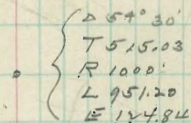 Δ 54° 30'
T 515.03
R 1000'
L 951.20
E 124.84